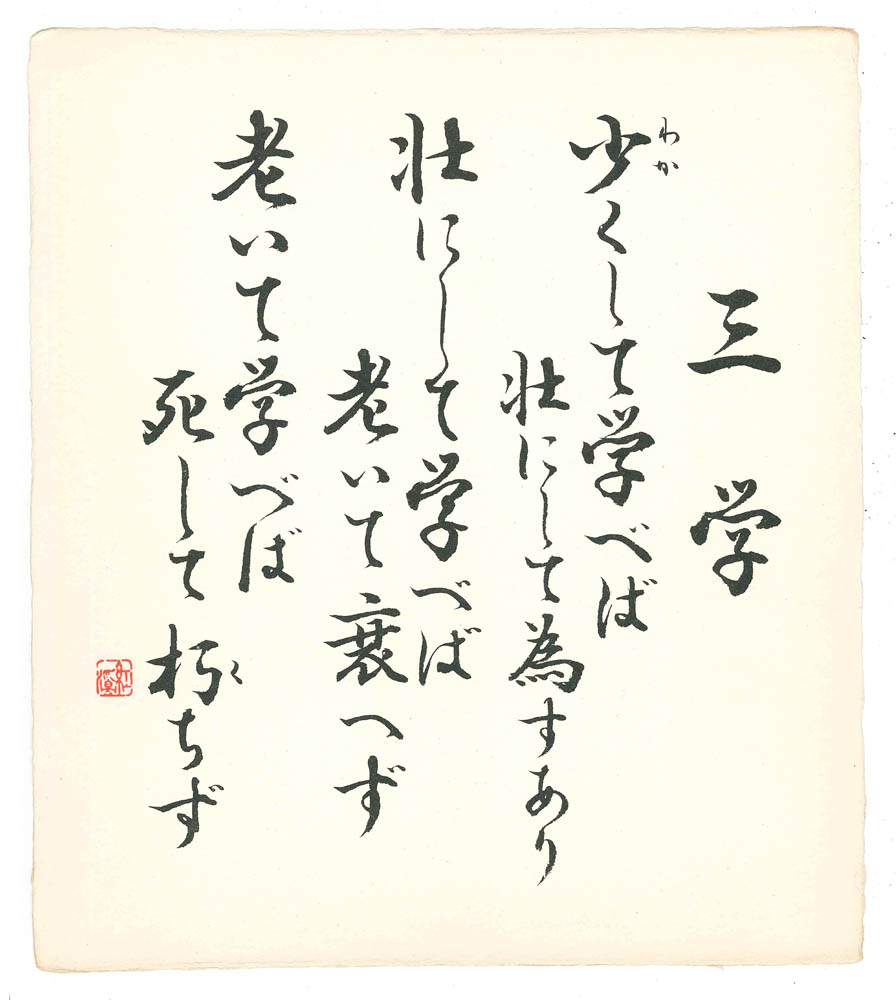 三学
少くして学べば
わか
壮にして為すあり
壮にして学べば
老いて衰へず
老いて学べば
死して朽ちず
く